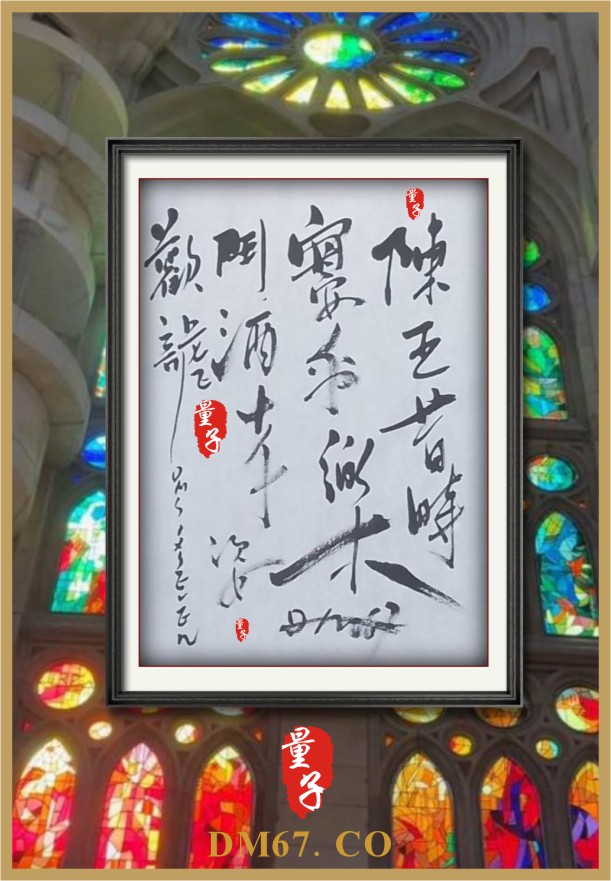 量子
陳王昔時
宴平樂
鬥酒十千恣
量子
歡謔
量子
量子
DM67. CO